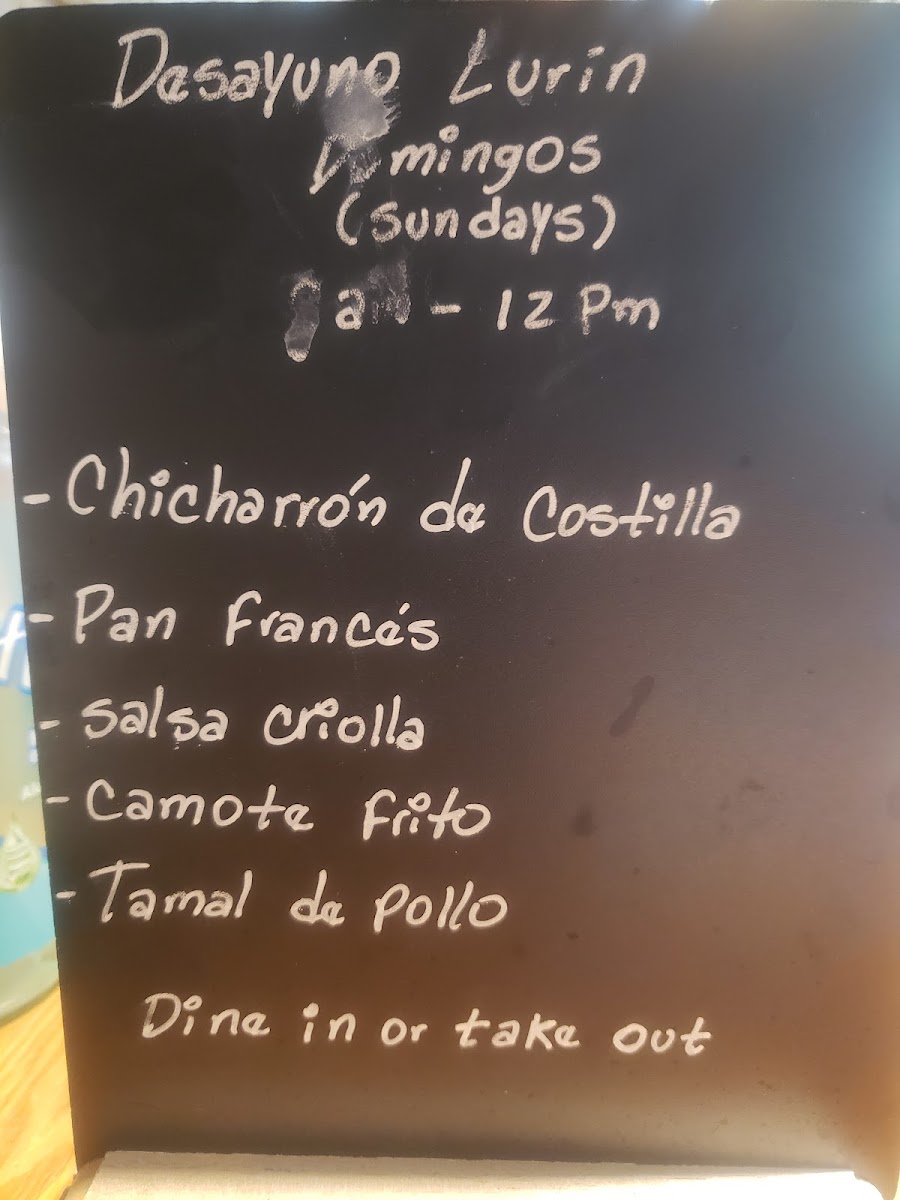 Desayuno Lurin
Domingos
(Sundays)
am - 12 Pm
- Chicharrón de Costilla
- Pan Francés
- Salsa Criolla
- Camote Frito
- Tamal de Pollo
Dine in or take out